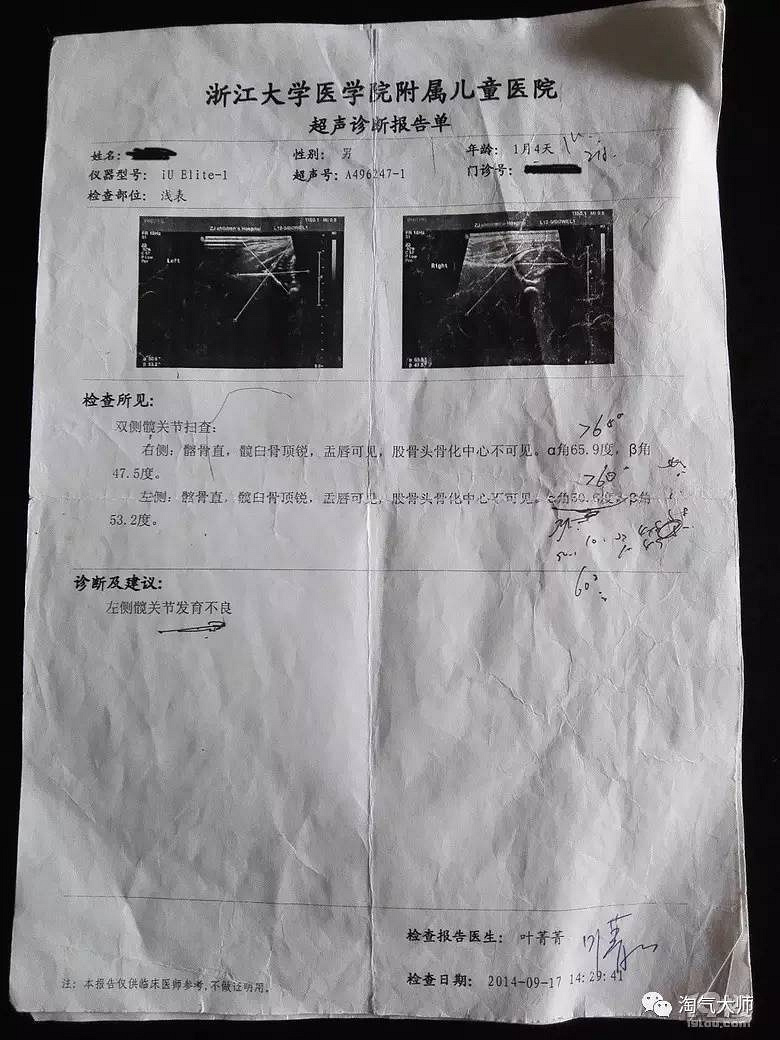 浙江大学医学院附属儿童医院
超声诊断报告单
姓名: 性别: 男 年龄: 1月4天
仪器型号: iU Elite-1 超声号: A496247-1 门诊号:
检查部位: 浅表
ZJ children's Hospital
Left
ZJ children's Hospital
Right
检查所见:
双侧髋关节扫查:
右侧: 髂骨直, 髋臼骨顶锐, 盂唇可见, 股骨头骨化中心不可见。α角65.9度, β角
47.5度。
>60°
左侧: 髂骨直, 髋臼骨顶锐, 盂唇可见, 股骨头骨化中心不可见。 β角
53.2度。
60°
诊断及建议:
左侧髋关节发育不良
检查报告医生: 叶菁菁
检查日期: 2014-09-17 14:29:41
注: 本报告仅供临床医师参考, 不做证明用。
淘气大师